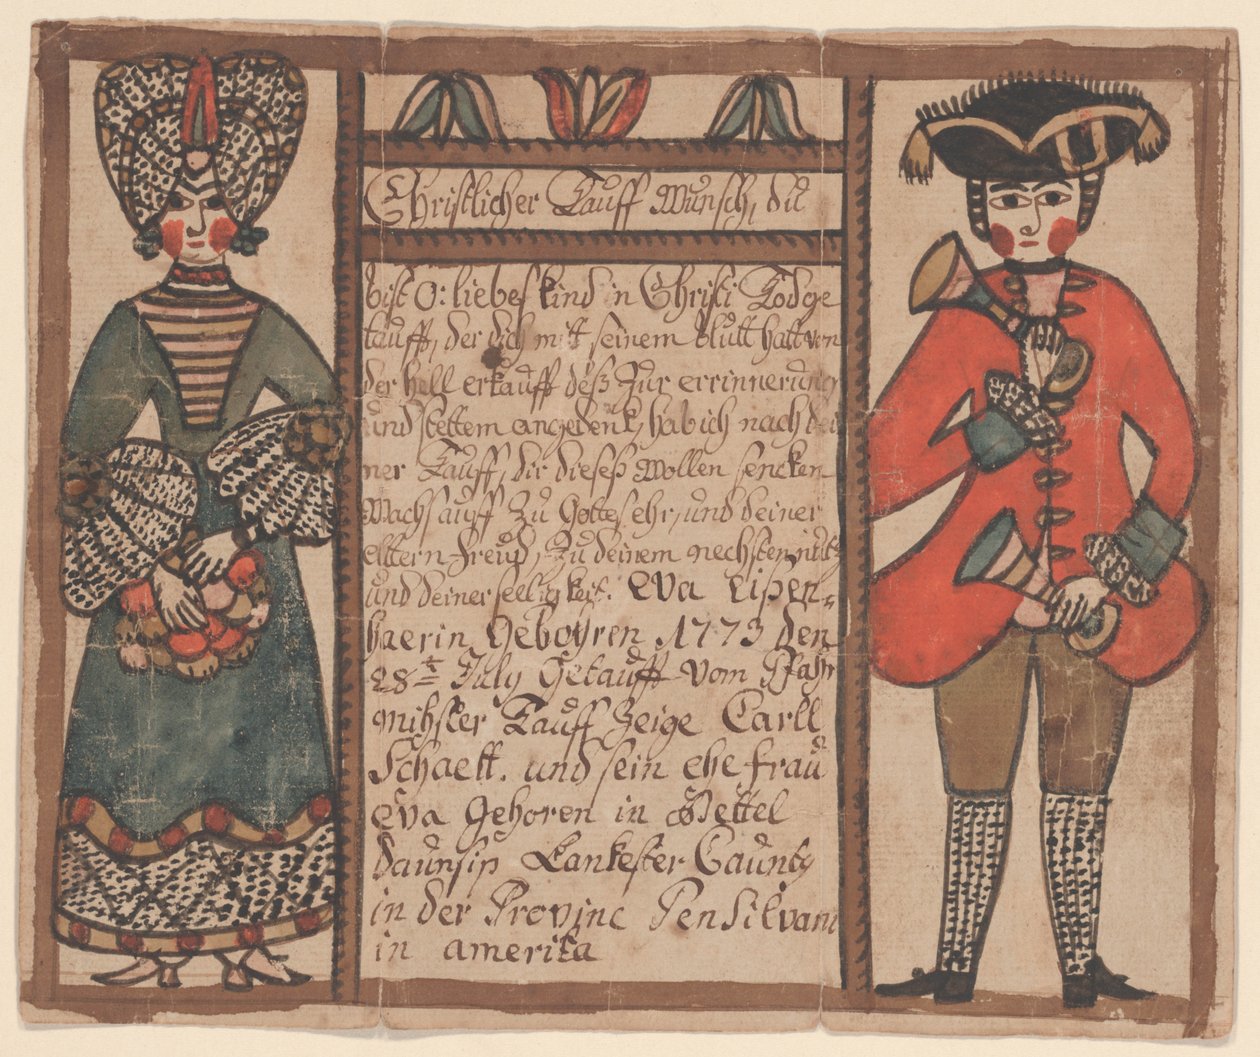 Christlicher Tauff Wunsch, du
bist O: liebes kind in Christi Todge
taufft, der dich mit seinem blutt hatt von
der hell erkaufft deß Zur errinnerung
und stettem angedenk, hab ich nach dei
ner Tauff, dir dieses Wollen sencken
Wachs auff Zu Gottes ehr, und deiner
eltern freud, Zu deinem nechsten nutz
und deiner seeligkeit. Eva Lißen=
haerin Gebohren 1773 den
28t July Getaufft vom Pfahr
Tauff Zeige Carll
Schaeff. und sein ehe frau
eva Gehoren in Bettel
daunsip Lankester Caunty
in der Provinc Pensilvani
in amerika